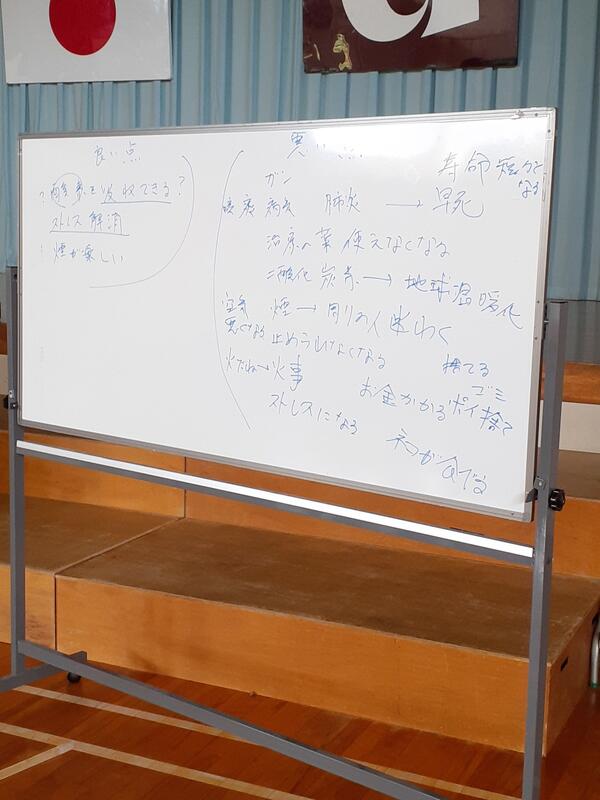 良い点
? 酸素を吸収できる?
ストレス解消
煙が楽しい
悪い点
寿命短かくなる
ガン
病気 肺炎 → 早死
治療の薬使えなくなる
二酸化炭素 → 地球温暖化
空気悪くなる
煙→周りの人迷わく
止められなくなる
火だね→火事
捨てる
ゴミ
お金かかる
ポイ捨て
ストレスになる
ネコが食べる